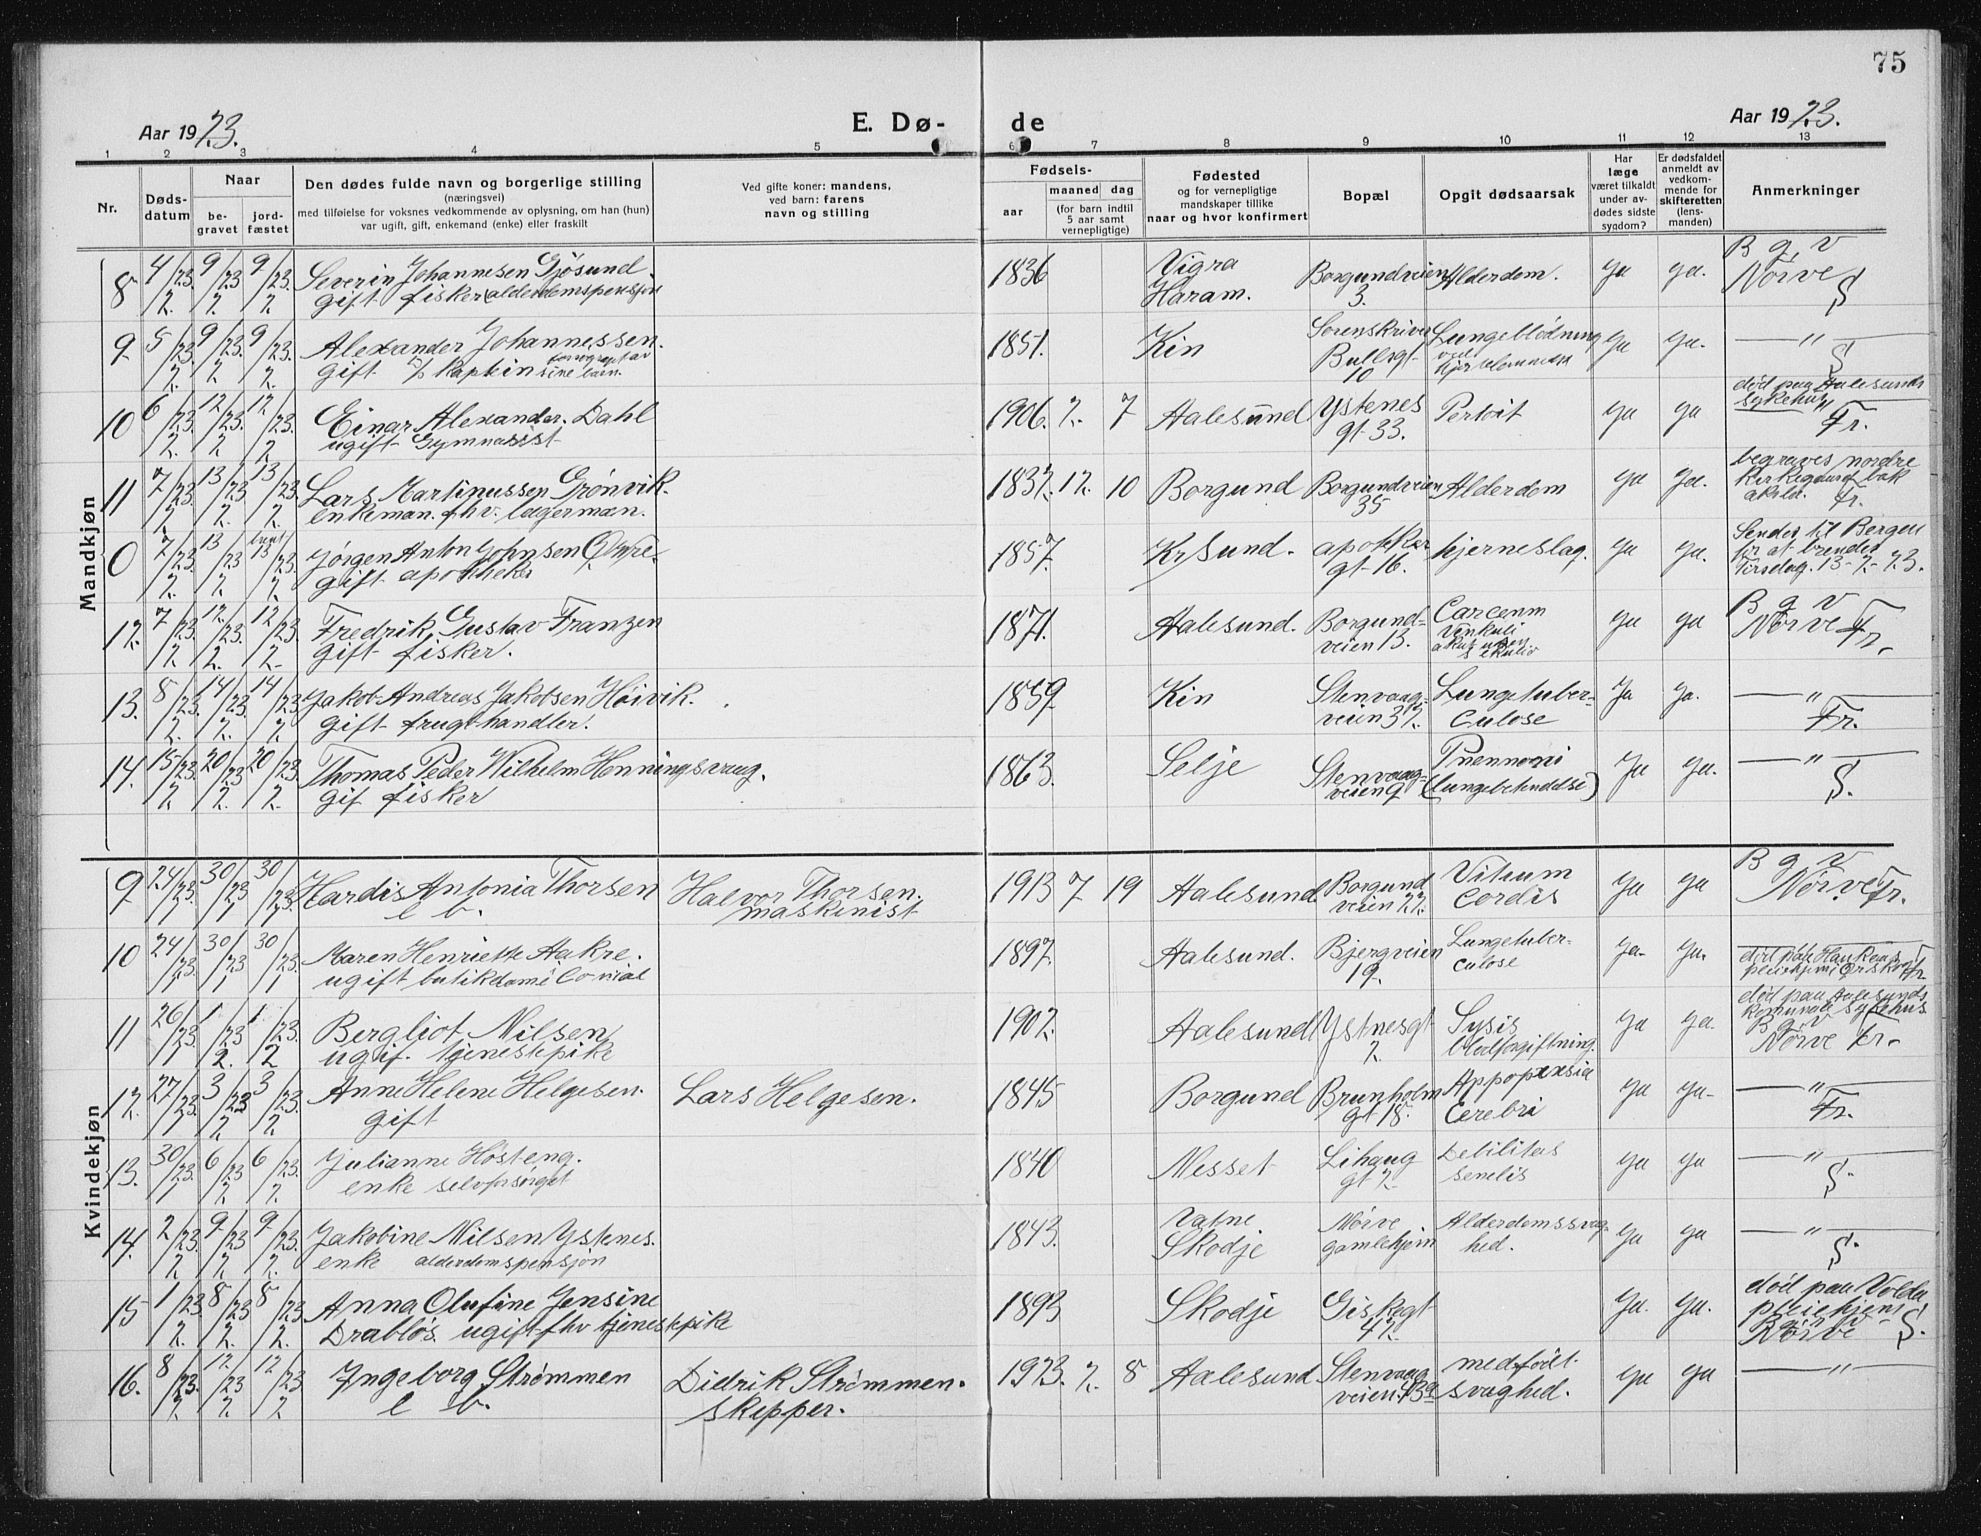 75
Aar 1923.
E. Dø- de
Aar 1923.
1 2 3 4 5 6 7 8 9 10 11 12 13
Nr.
Døds-
datum
Naar
be-
gravet
jord-
fæstet
Den dødes fulde navn og borgerlige stilling
(næringsvei)
med tilføielse for voksnes vedkommende av oplysning, om han (hun)
var ugift, gift, enkemand (enke) eller fraskilt
Ved gifte koner: mandens,
ved barn: farens
navn og stilling
Fødsels-
aar
maaned dag
(for barn indtil
5 aar samt
vernepligtige)
Fødested
og for vernepligtige
mandskaper tillike
naar og hvor konfirmert
Bopæl
Opgit dødsaarsak
Har
læge
været tilkaldt
under av-
dødes sidste
sygdom?
Er dødsfaldet
anmeldt av
vedkom-
mende for
skifteretten
(lens-
manden)
Anmerkninger
Mandkjøn
8 4/2 23. 9/2 23 9/2 23. Severin Johannesen Gjøsund 1836 Vigra Borgundveien Alderdom. Ja ja. B g v
gift fisker (alderdomspensjon Haram. 3. Nørve S
9 5/2 23. 9/2 23. 9/2 23. Alexander Johannessen. 1851. Kin Sorenskriver Lungeblødning Ja Ja. — " —
gift sine barn. Bullsgt. 10 S
10 6/2 23. 12/2 23. 12/2 23. Einar Alexander Dahl 1906. 2. 7 Aalesund Ystenes ja ja død paa Aalesunds
ugift Gymnasist gt 33. sykehus Fr.
11 7/2 23. 13/2 23 13/2 23. Lars Martinussen Grønvik. 1832. 12. 10 Borgund Borgundveien Alderdom Ja Ja. begraves nordre
enkeman. fhv. lagerman. 35 kirkegaard Fr.
0 7/2 23. 13/2 23 13/2 23. Jørgen Anton Johnsen 1857. Kr Sund. apotheker hjerneslag. Ja Ja. Sendes til Bergen
gift apotheker gt 16. for at brendes
Tirsdag. 13-2-23.
12. 7/2 23. 12/2 23. 12/2 23. Fredrik Gustav Franzen 1871. Aalesund. Borgund- ja ja B g v
gift fisker. veien 13. Nørve Fr.
13. 8/2 23. 14/2 23. 14/2 23. Jakob Andreas Jakobsen Høivik. 1859 Kin Stenvaag- Lungetuber- Ja Ja. — " —
gift frugthandler. veien 32. culose Fr.
14. 15/2 23. 20/2 23 20/2 23. Thomas Peder Wilhelm Henningsvaag. 1863. Selje Stenvaag- Ja ja. — " —
gif fisker veien 9 (lungebetendelse) S.
Kvindekjøn
9 24/1 23. 30/1 23 30/1 23. Hardis Antonia Thorsen Halvor Thorsen. 1913 7 19 Aalesund Borgund Vitium Ja ja B g v
e b. maskinist veien 22. Cordis Nørve Fr.
10 24/1 23. 30/1 23 30/1 23. Maren Henriette Aakre. 1897. Aalesund. Bjergveien Lungetuber- Ja. Ja. død paa Haukens
ugift butikdame Colonial 19. culose pleiehjem Ørskog Fr.
11 26/1 23. 1/2 23 1/2 23. Bergliot Nilsen 1902. Aalesund Ystnesgt Ja Ja. død paa Aalesunds
ugif. tjenestepike 2 blodforgiftning. komunale sykehus
B g v
Nørve Fr.
12. 27/1 23. 3/2 23 3/2 23. Anne Helene Helgesen. Lars Helgesen. 1845 Borgund Brunholm Appopexsia Ja Ja. — " —
gift gt 18. Cerebri Fr.
13. 30/1 23. 6/2 23 6/2 23. Julianne Høsteng. 1840 Nesset Lihaug Debilitas ja ja — " —
enke selvforsørget gt 2 senelis S.
14. 2/2 23. 9/2 23 9/2 23. Jakobine Nilsen Ystenes. 1843. Vatne Nørve Alderdomssvag- Ja ja — " —
enke alderdomspensjon Skodje gamlehjem hed. S.
15 1/2 23. 8/2 23 8/2 23 Anna Olufine Jensine 1893 Skodje Giskegt Ja. Ja. død paa Volda
Drabløs ugift fhv tjenestepike 42. pleiehjem
B g v
Nørve S.
16. 8/2 23. 12/2 23 12/2 23 Ingeborg Strømmen Didrik Strømmen. 1923. 2. 8 Aalesund Stenvaag medfødt ja ja — " —
e b. skipper. veien 13a svaghed.